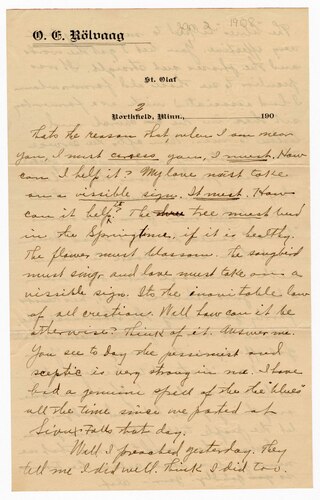 1908
O. E. Rölvaag
St. Olaf
3
Northfield, Minn., 190
thats the reason that, when I am near
you, I must caress you, I must. How
can I help it? My love must take
on a vissible sign. It must. How
can it help it? The tree must bud
in the Springtime, if it is healthy.
The flower must blossom. The songbird
must sing, and love must take on a
vissible sign. Its the inevitable law
of all creation. Well how can it be
otherwise? Think of it. Answer me.
You see to day the pessimist and
sceptic is very strong in me. I have
had a genuine spell of the the "blues"
all the time since we parted at
Sioux Falls that day.
Well I preached yesterday. They
tell me I did well. Think I did too.